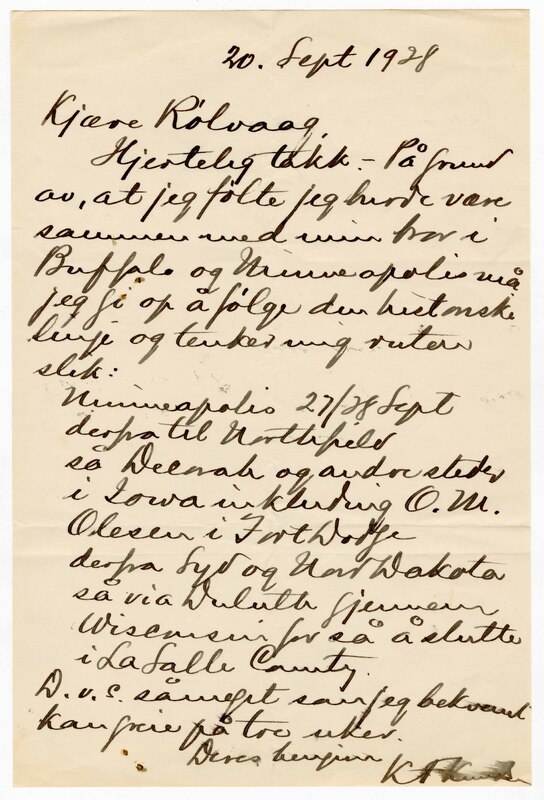 20. Sept 1928
Kjære Rölvaag.
Hjertelig takk. - På grund
av, at jeg følte jeg burde være
sammen med min bror i
Buffalo og Minneapolis må
jeg gi op å følge den historiske
linje og tenker mig ruten
slik:
Minneapolis 27/28 Sept
derfra til Northfield
så Decorah og andre steder
i Iowa inkluding O. M.
Olesen i Fort Dodge
derfra Syd og Nord Dakota
så via Duluth gjennem
Wisconsin for så å slutte
i LaSalle County.
D. v. s. såmeget som jeg bekvemt
kan greie på tre uker.
Deres hengivne
K